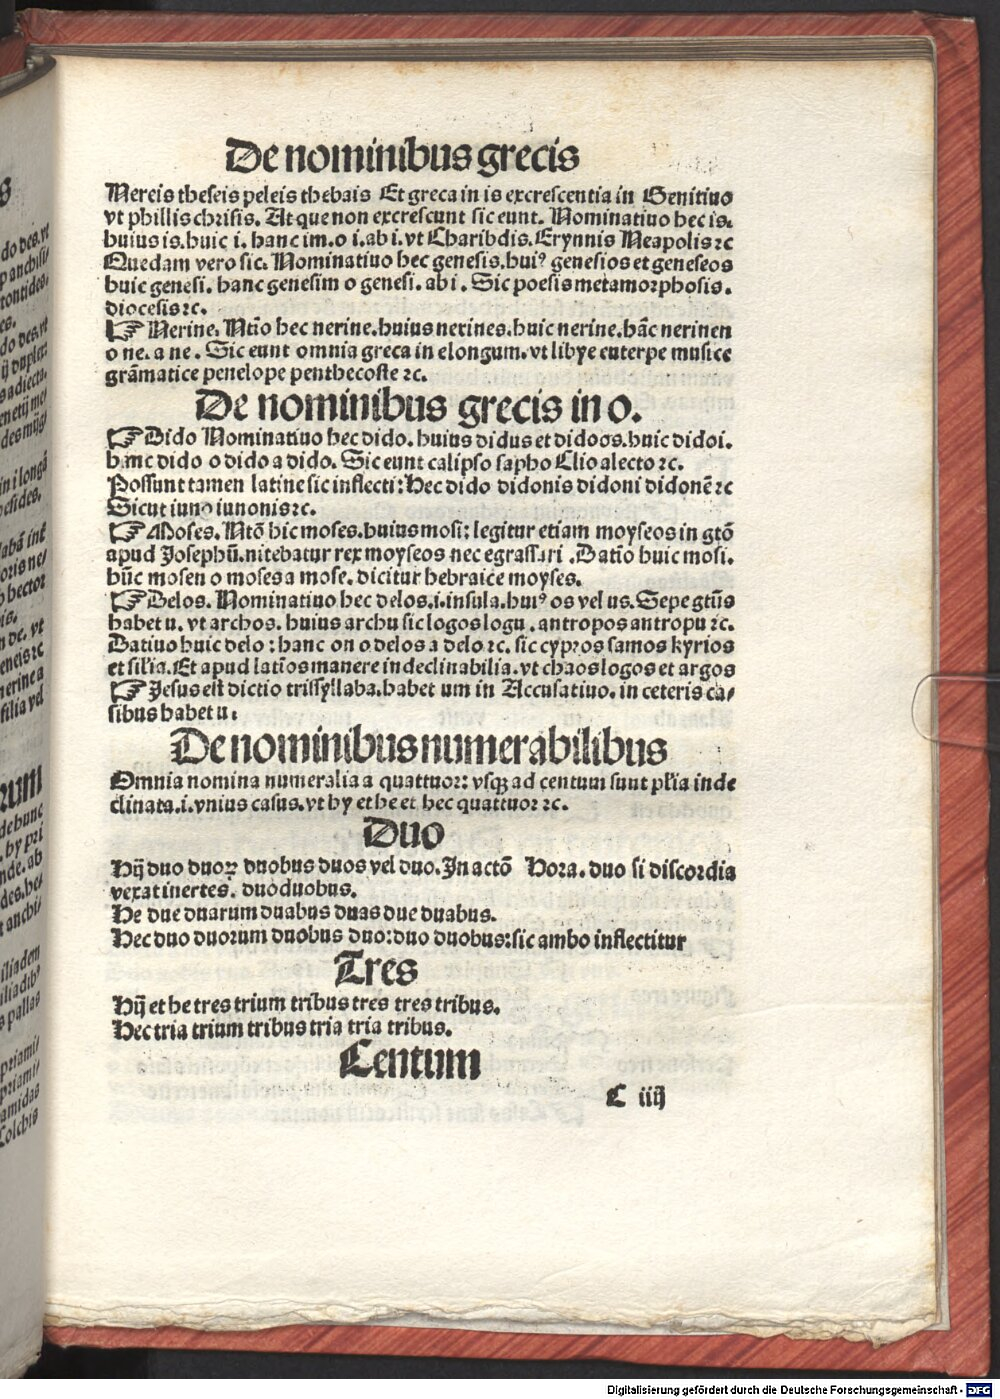 De nominibus grecis
Nereis theseis peleis thebais Et greca in is excrescentia in Genitiuo
vt phillis chrisis. At que non excrescunt sic eunt. Nominatiuo hec is.
huius is. huic i. hanc im. o i. ab i. vt Charibdis. Erynnis Neapolis ⁊c
Quedam vero sic. Nominatiuo hec genesis. huiꝰ genesios et geneseos
huic genesi. hanc genesim o genesi. ab i. Sic poesis metamorphosis.
diocesis ⁊c.
☞ Nerine. Ntīo hec nerine. huius nerines. huic nerine. hāc nerinen
o ne. a ne. Sic eunt omnia greca in e longum. vt libye euterpe musice
grāmatice penelope penthecoste ⁊c.
De nominibus grecis in o.
☞ Dido Nominatiuo hec dido. huius didus et didoos. huic didoi.
hanc dido o dido a dido. Sic eunt calipso sapho Clio alecto ⁊c.
Possunt tamen latine sic inflecti: Hec dido didonis didoni didonē ⁊c
Sicut iuno iunonis ⁊c.
☞ Moses. Ntō hic moses. huius mosi: legitur etiam moyseos in gtō
apud Josephū. nitebatur rex moyseos nec egrassari . Datīo huic mosi.
hūc mosen o moses a mose. dicitur hebraice moyses.
☞ Delos. Nominatiuo hec delos .i. insula. huiꝰ os vel us. Sepe gtūs
habet u. vt archos. huius archu sic logos logu . antropos antropu ⁊c.
Datiuo huic delo: hanc on o delos a delo ⁊c. sic cypros samos kyrios
et silīa. Et apud latīos manere indeclinabilia. vt chaos logos et argos
☞ Jesus est dictio trissyllaba. habet um in Accusatiuo. in ceteris ca⸗
sibus habet u:
De nominibus numerabilibus
Omnia nomina numeralia a quattuor: vsqꝫ ad centum sunt plīa inde
clinata .i. vnius casus. vt hy et he et hec quattuor ⁊c.
Duo
Hij duo duoꝝ duobus duos vel duo. In actō Hora. duo si discordia
vexat inertes. duo duobus.
He due duarum duabus duas due duabus.
Hec duo duorum duobus duo: duo duobus: sic ambo inflectitur
Tres
Hij et he tres trium tribus tres tres tribus.
Hec tria trium tribus tria tria tribus.
Centum
C iiij
Digitalisierung gefördert durch die Deutsche Forschungsgemeinschaft - DFG